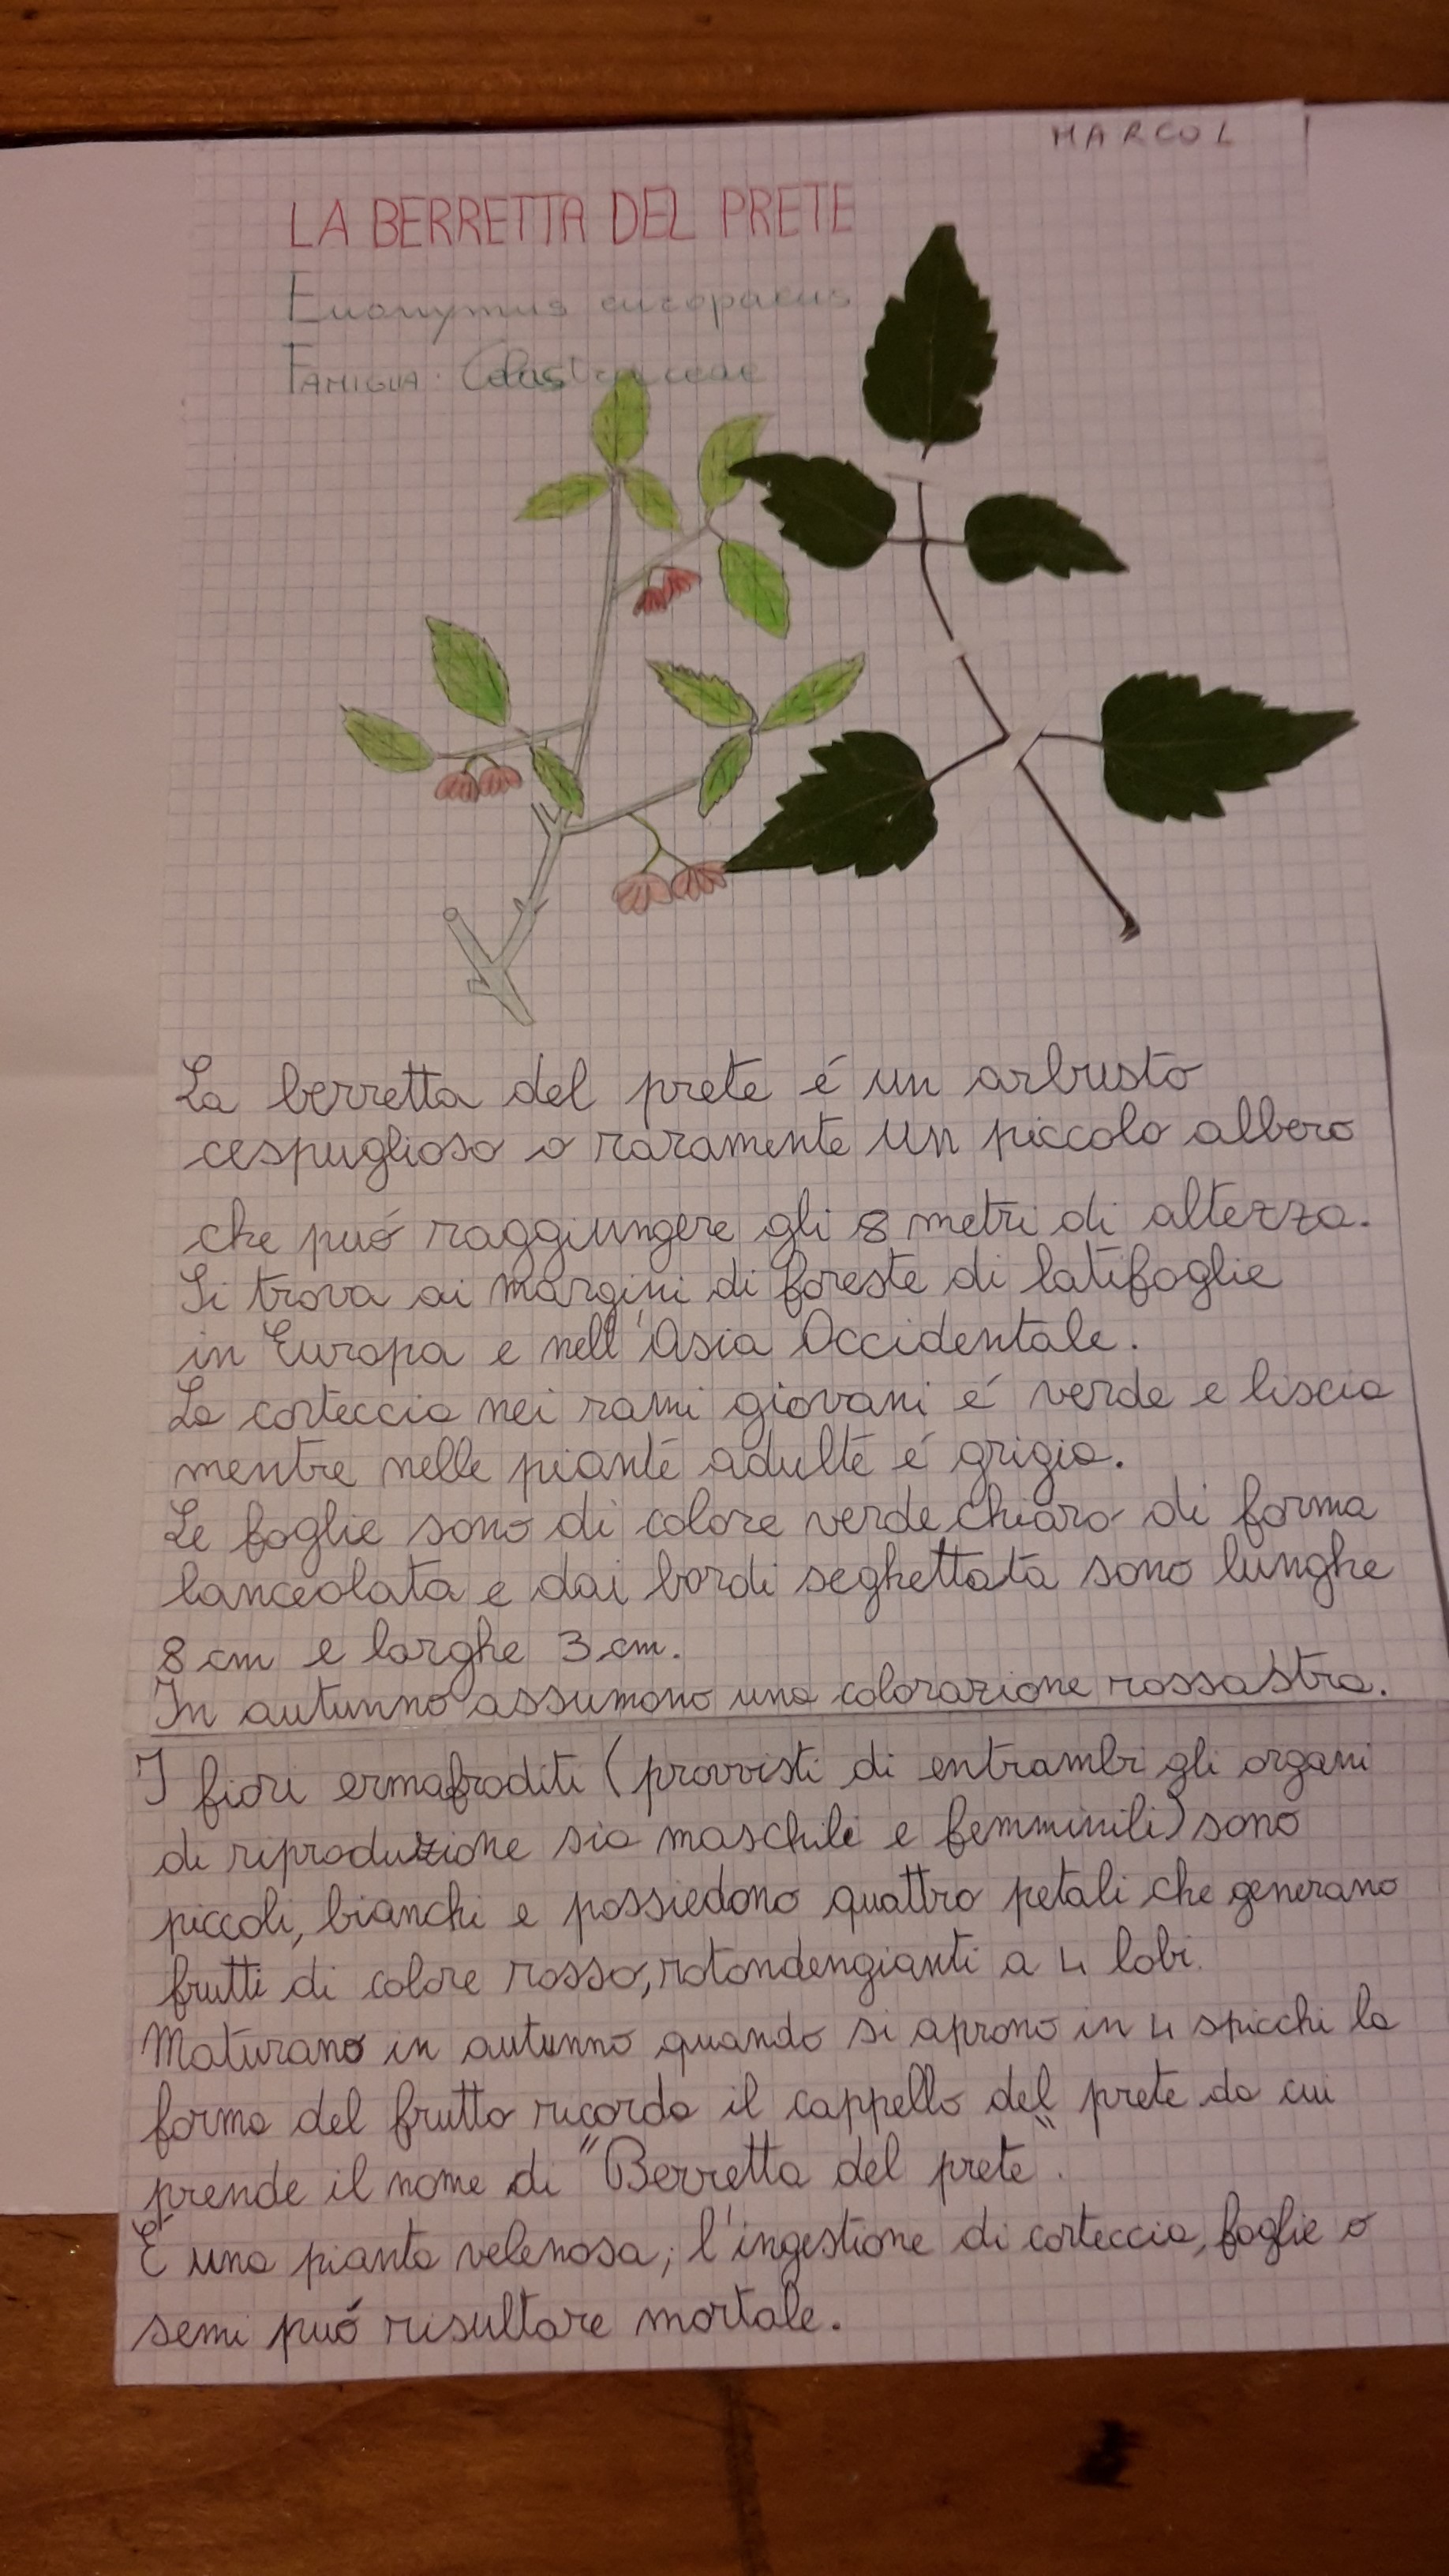 MARCO L
LA BERRETTA DEL PRETE
Euonymus europaeus
FAMIGLIA: Celastraceae
La berretta del prete é un arbusto
cespuglioso o raramente un piccolo albero
che puó raggiungere gli 8 metri di altezza.
Si trova ai margini di foreste di latifoglie
in Europa e nell'Asia Occidentale.
La corteccia nei rami giovani é verde e liscia
mentre nelle piante adulte é grigia.
Le foglie sono di colore verde chiaro di forma
lanceolata e dai bordi seghettata sono lunghe
8 cm e larghe 3 cm.
In autunno assumono una colorazione rossastra.
I fiori ermafroditi (provvisti di entrambi gli organi
di riproduzione sia maschili e femminili) sono
piccoli, bianchi e possiedono quattro petali che generano
frutti di colore rosso, rotondengianti a 4 lobi.
Maturano in autunno quando si aprono in 4 spicchi la
forma del frutto ricorda il cappello del prete da cui
prende il nome di "Berretta del prete".
É una pianta velenosa; l'ingestione di corteccia, foglie o
semi puó risultare mortale.